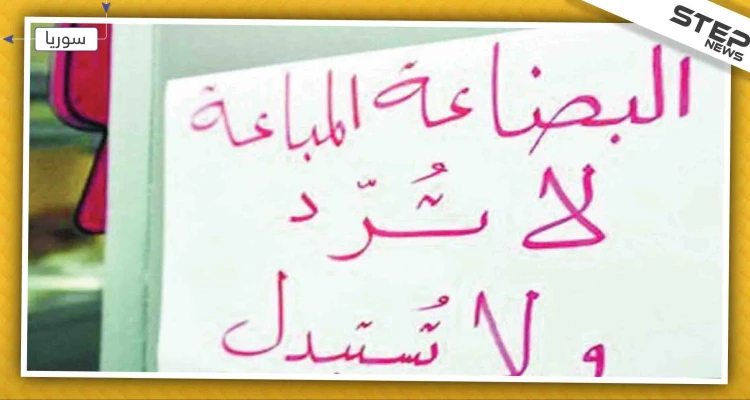 سوريا
STEP
NEWS
البضاعة المباعة
لا تُرّد
و لا تُستبدل